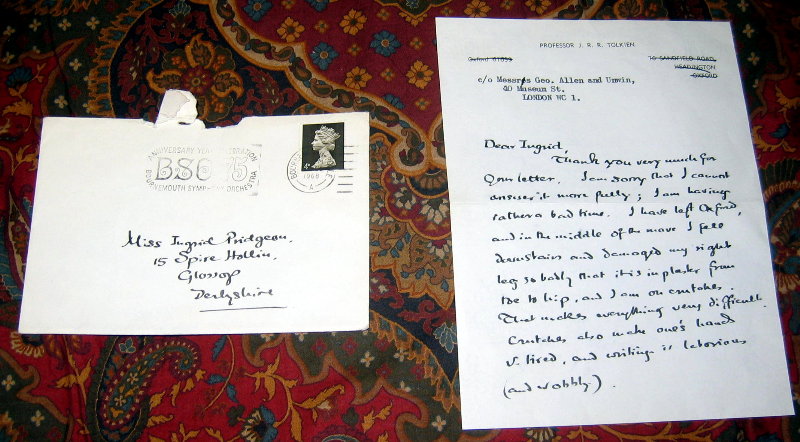 ANNIVERSARY YEAR CELEBRATION
BSO 75
BOURNEMOUTH SYMPHONY ORCHESTRA
1968
Miss Ingrid Pridgeon,
15 Spire Hollin,
Glossop
Derbyshire
PROFESSOR J. R. R. TOLKIEN
Oxford 61639
76 SANDFIELD ROAD,
HEADINGTON
OXFORD
c/o Messrs Geo. Allen and Unwin,
40 Museum St.
LONDON WC 1.
Dear Ingrid,
Thank you very much for
your letter. I am sorry that I cannot
answer it more fully; I am having
rather a bad time. I have left Oxford,
and in the middle of the move I fell
downstairs and damaged my right
leg so badly that it is in plaster from
toe to hip, and I am on crutches.
That makes everything very difficult.
Crutches also make one's hand
v. tired, and writing is laborious
(and wobbly).